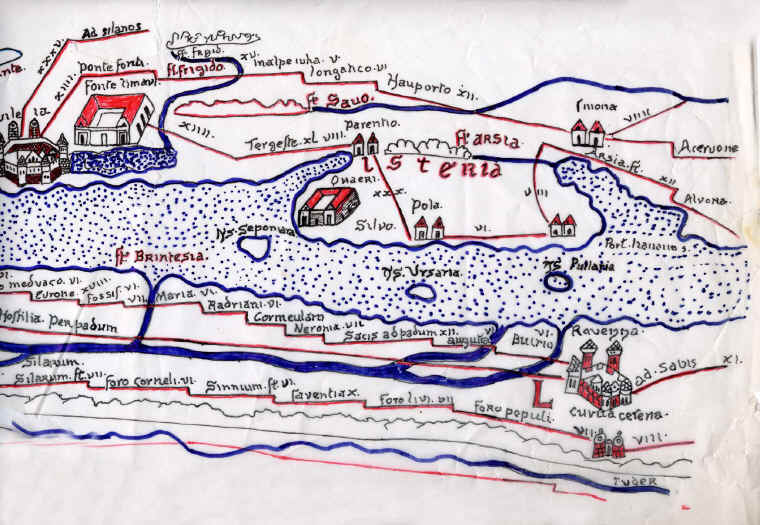 Ad silanos
fl. frgid.
XV.
XXXV.
ponte fonti.
fl. frigido
inalpe iulia. V.
longatico. VI
Hauporto XII.
XIIII.
fonte timavi.
fl. Savo.
Emona
VIIII
Acervone
XIIII.
Tergeste. XL VIII.
Parentio
fl. ARSIA
Isteria
Arsia. fl.
XII
Alvona.
XXX.
VIII
Silvo.
Pola
VI.
Port. planatic s.
Ns. Sepomaia
fl. BRINTESIA
Ns. Ursaria
Ns. Pullaria
VI.
o meduaco. VI.
Evrone. XVIII.
Fossis. VI.
VII.
Maria. VI.
Radriani. VI.
Corniculani
Neronia. VII.
Sacis ad padum. XII.
augusta
VI
VI.
Butrio
Ravenna
Hostilia. Per padum
L
ad. Sabis
XI.
Silarum.
Silarum. fl. VII.
foro corneli. VI.
Sinnium. fl. VI.
faventia X.
Foro livi. VII
Foro populi.
curva cesena.
VII.
VIII.
TUBER